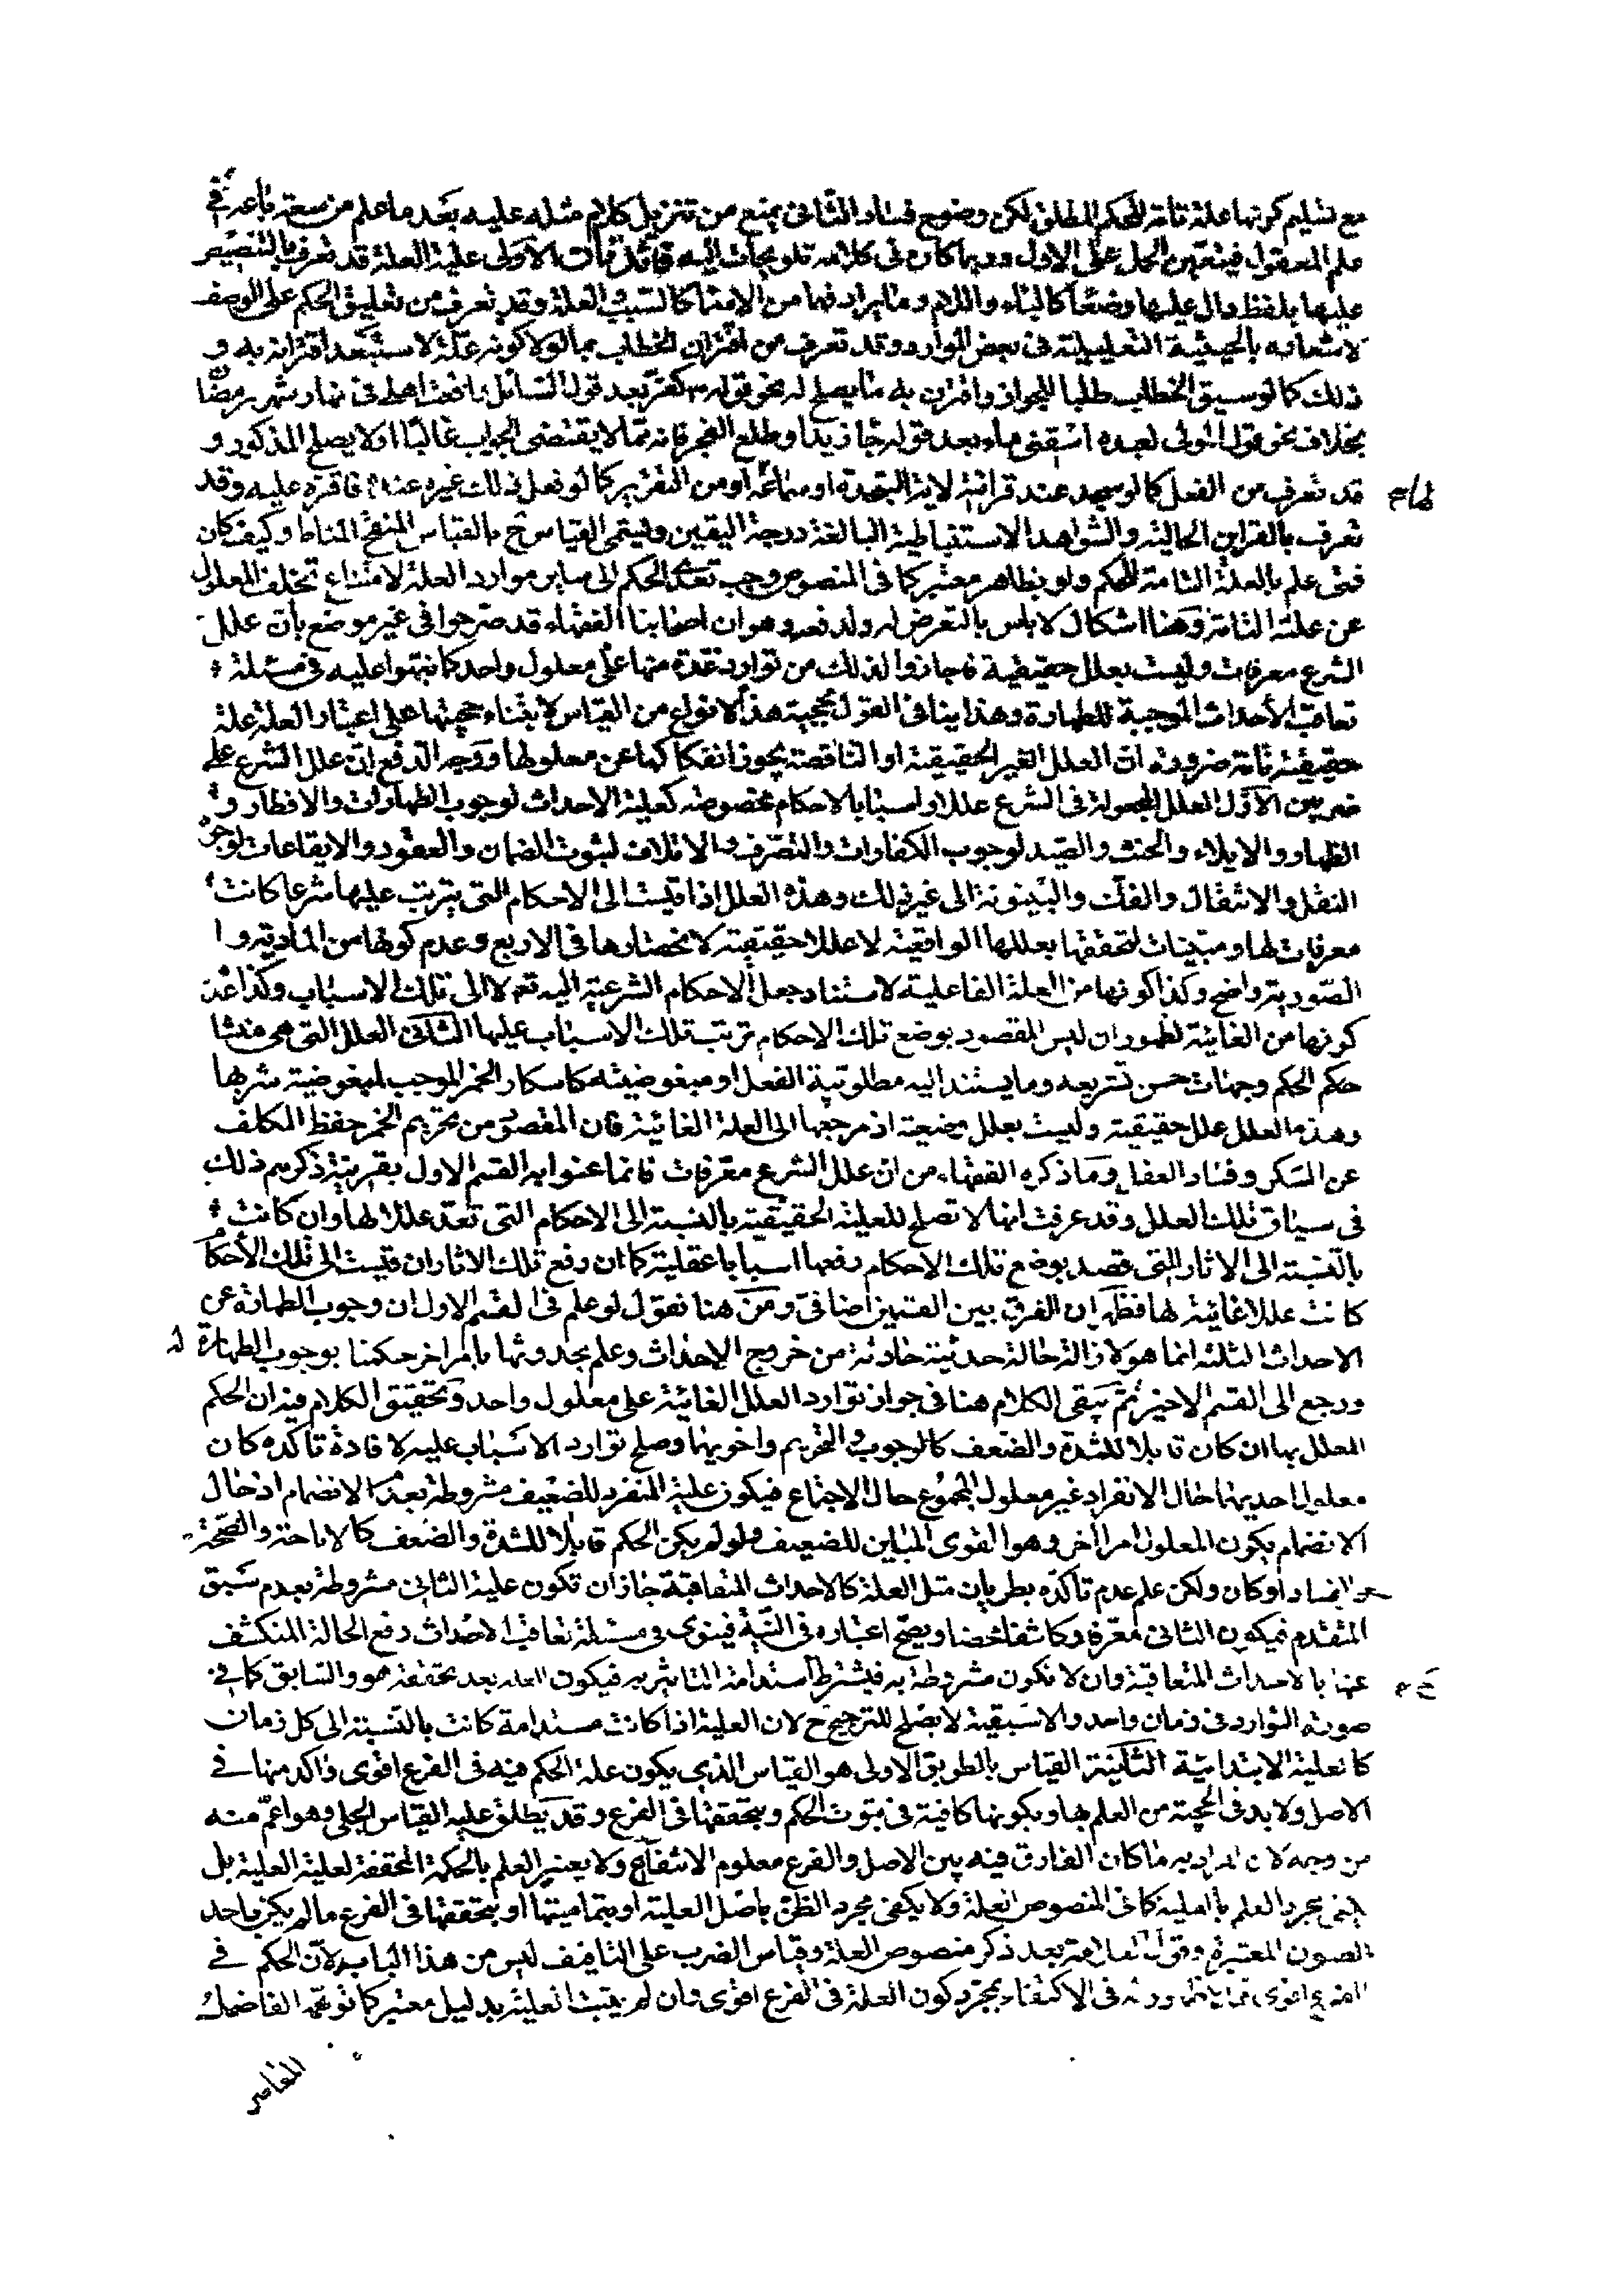 مع تسليم كونها علة تامة للحكم المطلق لكن وضوح فساد الثانى يمنع من تنزيل كلام مثله عليه بعد ما علم من سعة باعه فى
علم المعقول فيتعين الحمل على الاول وربما كان فى كلامه تلويحات اليه فائدتان الاولى علية العلة قد تعرف بالتنصيص
عليها بلفظ دال عليها وضعا كالباء واللام وما يرادفهما من الاسماء كالسبب والعلة وقد تعرف من تعليق الحكم على الوصف
لاشعاره بالحيثية التعليلية فى بعض الموارد وقد تعرف من اقتران الخطاب بما لولا كونه علة لاستبعد اقترانه به و
ذلك كما لو سيق الخطاب طلبا للجواب واقترن به ما يصلح له نحو قوله كفر بعد قول السائل واقعت اهلى فى نهار شهر رمضا
بخلاف نحو قول المولى لعبده اسقنى ماء بعد قوله جا زيد او طلع الفجر فانه مما لا يقتضى الجواب غالبا او لا يصلح المذكور و
قد تعرف من الفعل كما لو سجد عند قرائة لاية السجدة او سماعه او من التقرير كما لو فعل ذلك غيره عنده فاقره عليه وقد
تعرف بالقراين الحالية والشواهد الاستنباطية البالغة درجة اليقين ويسمى القياس ح بالقياس المنقح المناط وكيف كان
فمتى علم بالعلة التامة للحكم ولو بظاهر معتبر كما فى المنصوص وجب تعدى الحكم الى ساير موارد العلة لامتناع تخلف المعلول
عن علته التامة وهنا اشكال لا باس بالتعرض له ولدفعه وهو ان اصحابنا الفقهاء قد صرحوا فى غير موضع بان علل
الشرع معرفات وليست بعلل حقيقية فاجازوا لذلك من توارد عدة منها على معلول واحد كما نبهوا عليه فى مسئلة
تعاقب الأحداث الموجبة للطهارة وهذا ينافى القول بحجية هذه الانواع من القياس لابتناء حجيتها على اعتبار العلة علة
حقيقية تامة ضرورة ان العلل الغير الحقيقية او الناقصة يجوز انفكاكها عن معلولها ووجه الدفع ان علل الشرع على
ضربين الاول العلل المجعولة فى الشرع عللا او اسبابا لاحكام مخصوصة كعلية الاحداث لوجوب الطهارات والافطار و
الظهار والايلاء والحنث والصيد لوجوب الكفارات والتصرف والاتلاف لثبوت الضمان والعقود والايقاعات لوجو
النقل والانتقال والفك والبينونة الى غير ذلك وهذه العلل اذا قيست الى الاحكام التى يترتب عليها شرعا كانت
معرفات لها ومبينات لتحققها بعللها الواقعية لا عللا حقيقية لانحصارها فى الاربع وعدم كونها من المادية و ا
الصورية واضح وكذا كونها من العلة الفاعلية لاستناد جعل الاحكام الشرعية اليه تعم لا الى تلك الاسباب وكذا عدم
كونها من الغائية لظهور ان ليس المقصود بوضع تلك الاحكام ترتب تلك الاسباب عليها الثانى العلل التى هى منشا
حكم الحكم وجهات حسن تشريعه وما يستند اليه مطلوبية الفعل او مبغوضيته كاسكار الخمر الموجب لمبغوضية شربها
وهذه العلل علل حقيقية وليست بعلل وضعية اذ مرجعها الى العلة الغائية فان المقصود من تحريم الخمر حفظ المكلف
عن السكر وفساد العقل وما ذكره الفقهاء من ان علل الشرع معرفات فانما عنوا به القسم الاول بقرينة ذكرهم ذلك
فى سياق تلك العلل وقد عرفت انها لا تصلح للعلية الحقيقية بالنسبة الى الاحكام التى تعد عللا لها وان كانت
بالنسبة الى الاثار التى قصد بوضع تلك الاحكام رفعها اسبابا عقلية كما ان رفع تلك الاثار ان قيست الى تلك الأحكا
كانت عللا غائية لها فظهر ان الفرق بين القسمين اضافى ومن هنا نقول لو علم فى القسم الاول ان وجوب الطهارة عن
الاحداث الثلثة انما هو لازالة حالة حدثية حادثة من خروج الاحداث وعلم بحدوثها بامر اخر حكمنا بوجوب الطهارة له
ورجع الى القسم الاخير ثم يبقى الكلام هنا فى جواز توارد العلل الغائية على معلول واحد وتحقيق الكلام فيه ان الحكم
المعلل بها ان كان قابلا للشدة والضعف كالوجوب والتحريم واخويهما وصلح توارد الاسباب عليه لافادة تاكده كان
معلول احديهما حال الانفراد غير معلول المجموع حال الاجتماع فيكون علية المنفرد للضعيف مشروطة بعدم الانضمام اذ حال
الانضمام يكون المعلول امرا آخر وهو القوى المباين للضعيف ولو لم يكن الحكم قابلا للشدة والضعف كالاباحة والصحة
والفساد او كان ولكن علم عدم تاكده بطريان مثل العلة كالاحداث المتعاقبة جاز ان تكون علية الثانى مشروطة بعدم سبق
المتقدم فيكون الثانى معرفا وكاشفا محضا ويصح اعتباره فى النية فينوى فى مسئلة تعاقب الاحداث رفع الحالة المنكشف
عنها بالاحداث المتعاقبة وان لا تكون مشروطة به فيشترط استدامة التاثير به فيكون العلة بعد تحققه هو والسابق كما فى
صورة التوارد فى زمان واحد والاسبقية لا يصلح للترجيح ح لان العلية اذا كانت مستدامة كانت بالنسبة الى كل زمان
كالعلية الابتدائية الثانية القياس بالطريق الاولى هو القياس الذى يكون علة الحكم فيه فى الفرع اقوى واكد منها فى
الاصل ولا بد فى الحجية من العلم بها وبكونها كافية فى ثبوت الحكم وبتحققها فى الفرع وقد يطلق عليه القياس الجلى وهو اعم منه
من وجه لان المراد به ما كان الفارق فيه بين الاصل والفرع معلوم الانتفاء ح ولا يعتبر العلم بالحكمة المحققة لعلية العلية بل
يكفى مجرد العلم بالعلية كما فى المنصوص العلة ولا يكفى مجرد الظن باصل العلية او بتماميتها او بتحققها فى الفرع ما لم يكن باحد
الصور المعتبرة وقول العلامة بعد ذكر منصوص العلة وقياس الضرب على التافيف ليس من هذا الباب لان الحكم فى
الفرع اقوى فى الاكتفاء بمجرد كون العلة فى الفرع اقوى وان لم يثبت العلية بدليل معتبر كما توهمه الفاضل
المعاصر